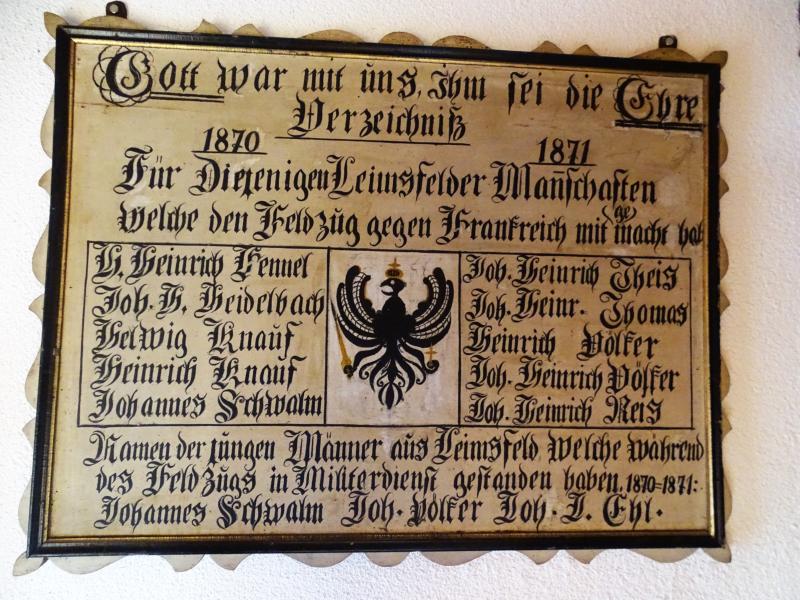 Gott war mit uns, ihm sei die Ehre
Verzeichniß
1870 1871
Für Diejenigen Leimsfelder Man̄schaften
welche den Feldzug gegen Frankreich mit ge macht hab
H. Heinrich Fennel
Joh. H. Heidelbach
Helwig Knauf
Heinrich Knauf
Johannes Schwalm
Joh. Heinrich Theis
Joh. Heinr. Thomas
Heinrich Völker
Joh. Heinrich Völker
Joh. Heinrich Reis
Namen der jungen Männer aus Leimsfeld welche während
des Feldzugs in Militerdienst gestanden haben. 1870=1871:
Johannes Schwalm Joh. Völker Joh. J. Ehl.